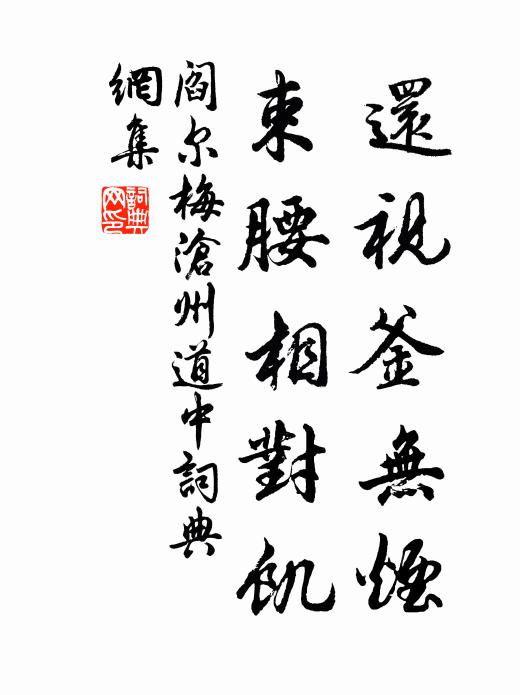 還視釜無煙
束腰相對飢
閻尔梅滄州道中詞典
網集
詞典
网印